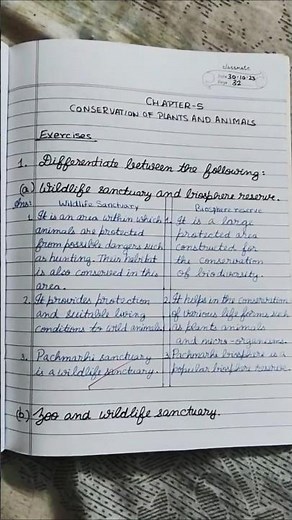 classmate
Date 30-10-23
Page 32
CHAPTER-5
CONSERVATION OF PLANTS AND ANIMALS
Exercises
1. Differentiate between the following:
(a) Wildlife sanctuary and biosphere reserve.
Ans: Wildlife Sanctuary
1. It is an area within which
animals are protected
from possible dangers such
as hunting. Their habitat
is also conserved in this
area.
2. It provides protection
and suitable living
conditions to wild animals
3. Pachmarhi sanctuary
is a wildlife sanctuary.
Biosphere reserve
1. It is a large
protected area
constructed for
the conservation
of biodiversity.
2. It helps in the conservation
of various life forms such
as plants animals
and micro-organisms.
3. Pachmarhi biosphere is a
popular biosphere reserve.
(b) Zoo and wildlife sanctuary.